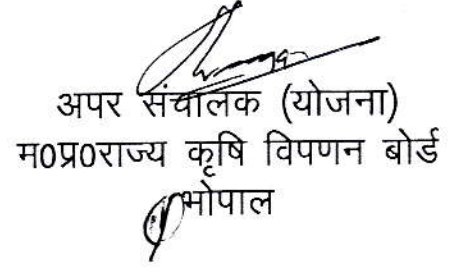 अपर संचालक (योजना)
म0प्र0राज्य कृषि विपणन बोर्ड
भोपाल